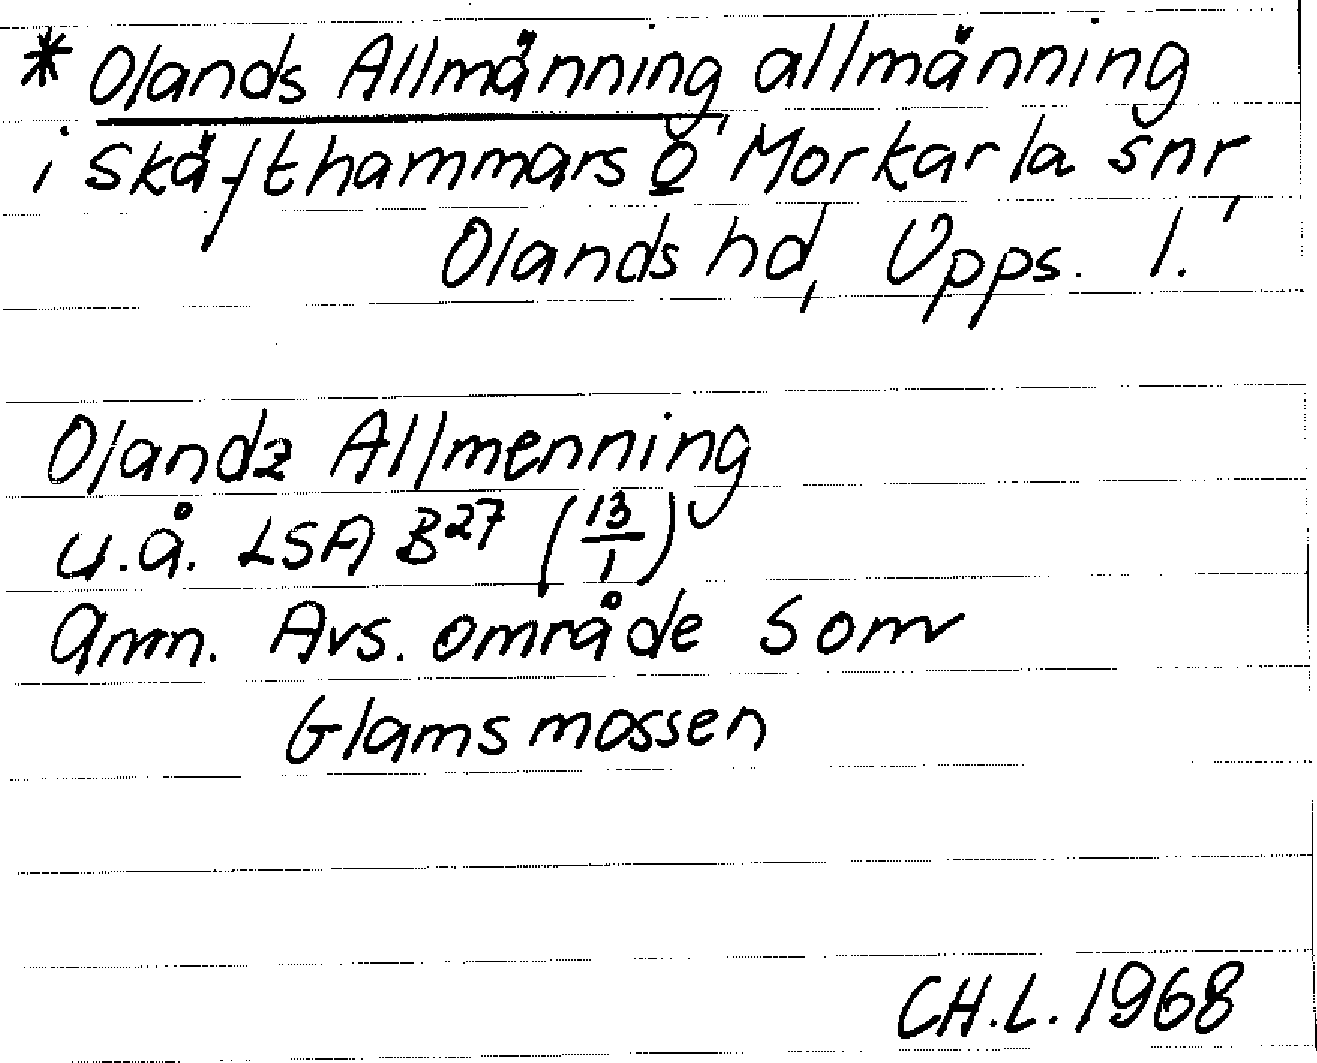 * Olands Allmänning allmänning
i Skäfthammars o Morkarla snr,
Olands hd, Upps. l.
Olandz Allmenning
u.å. LSA B27 (13/1)
Anm. Avs. område som
Glamsmossen
CH.L. 1968